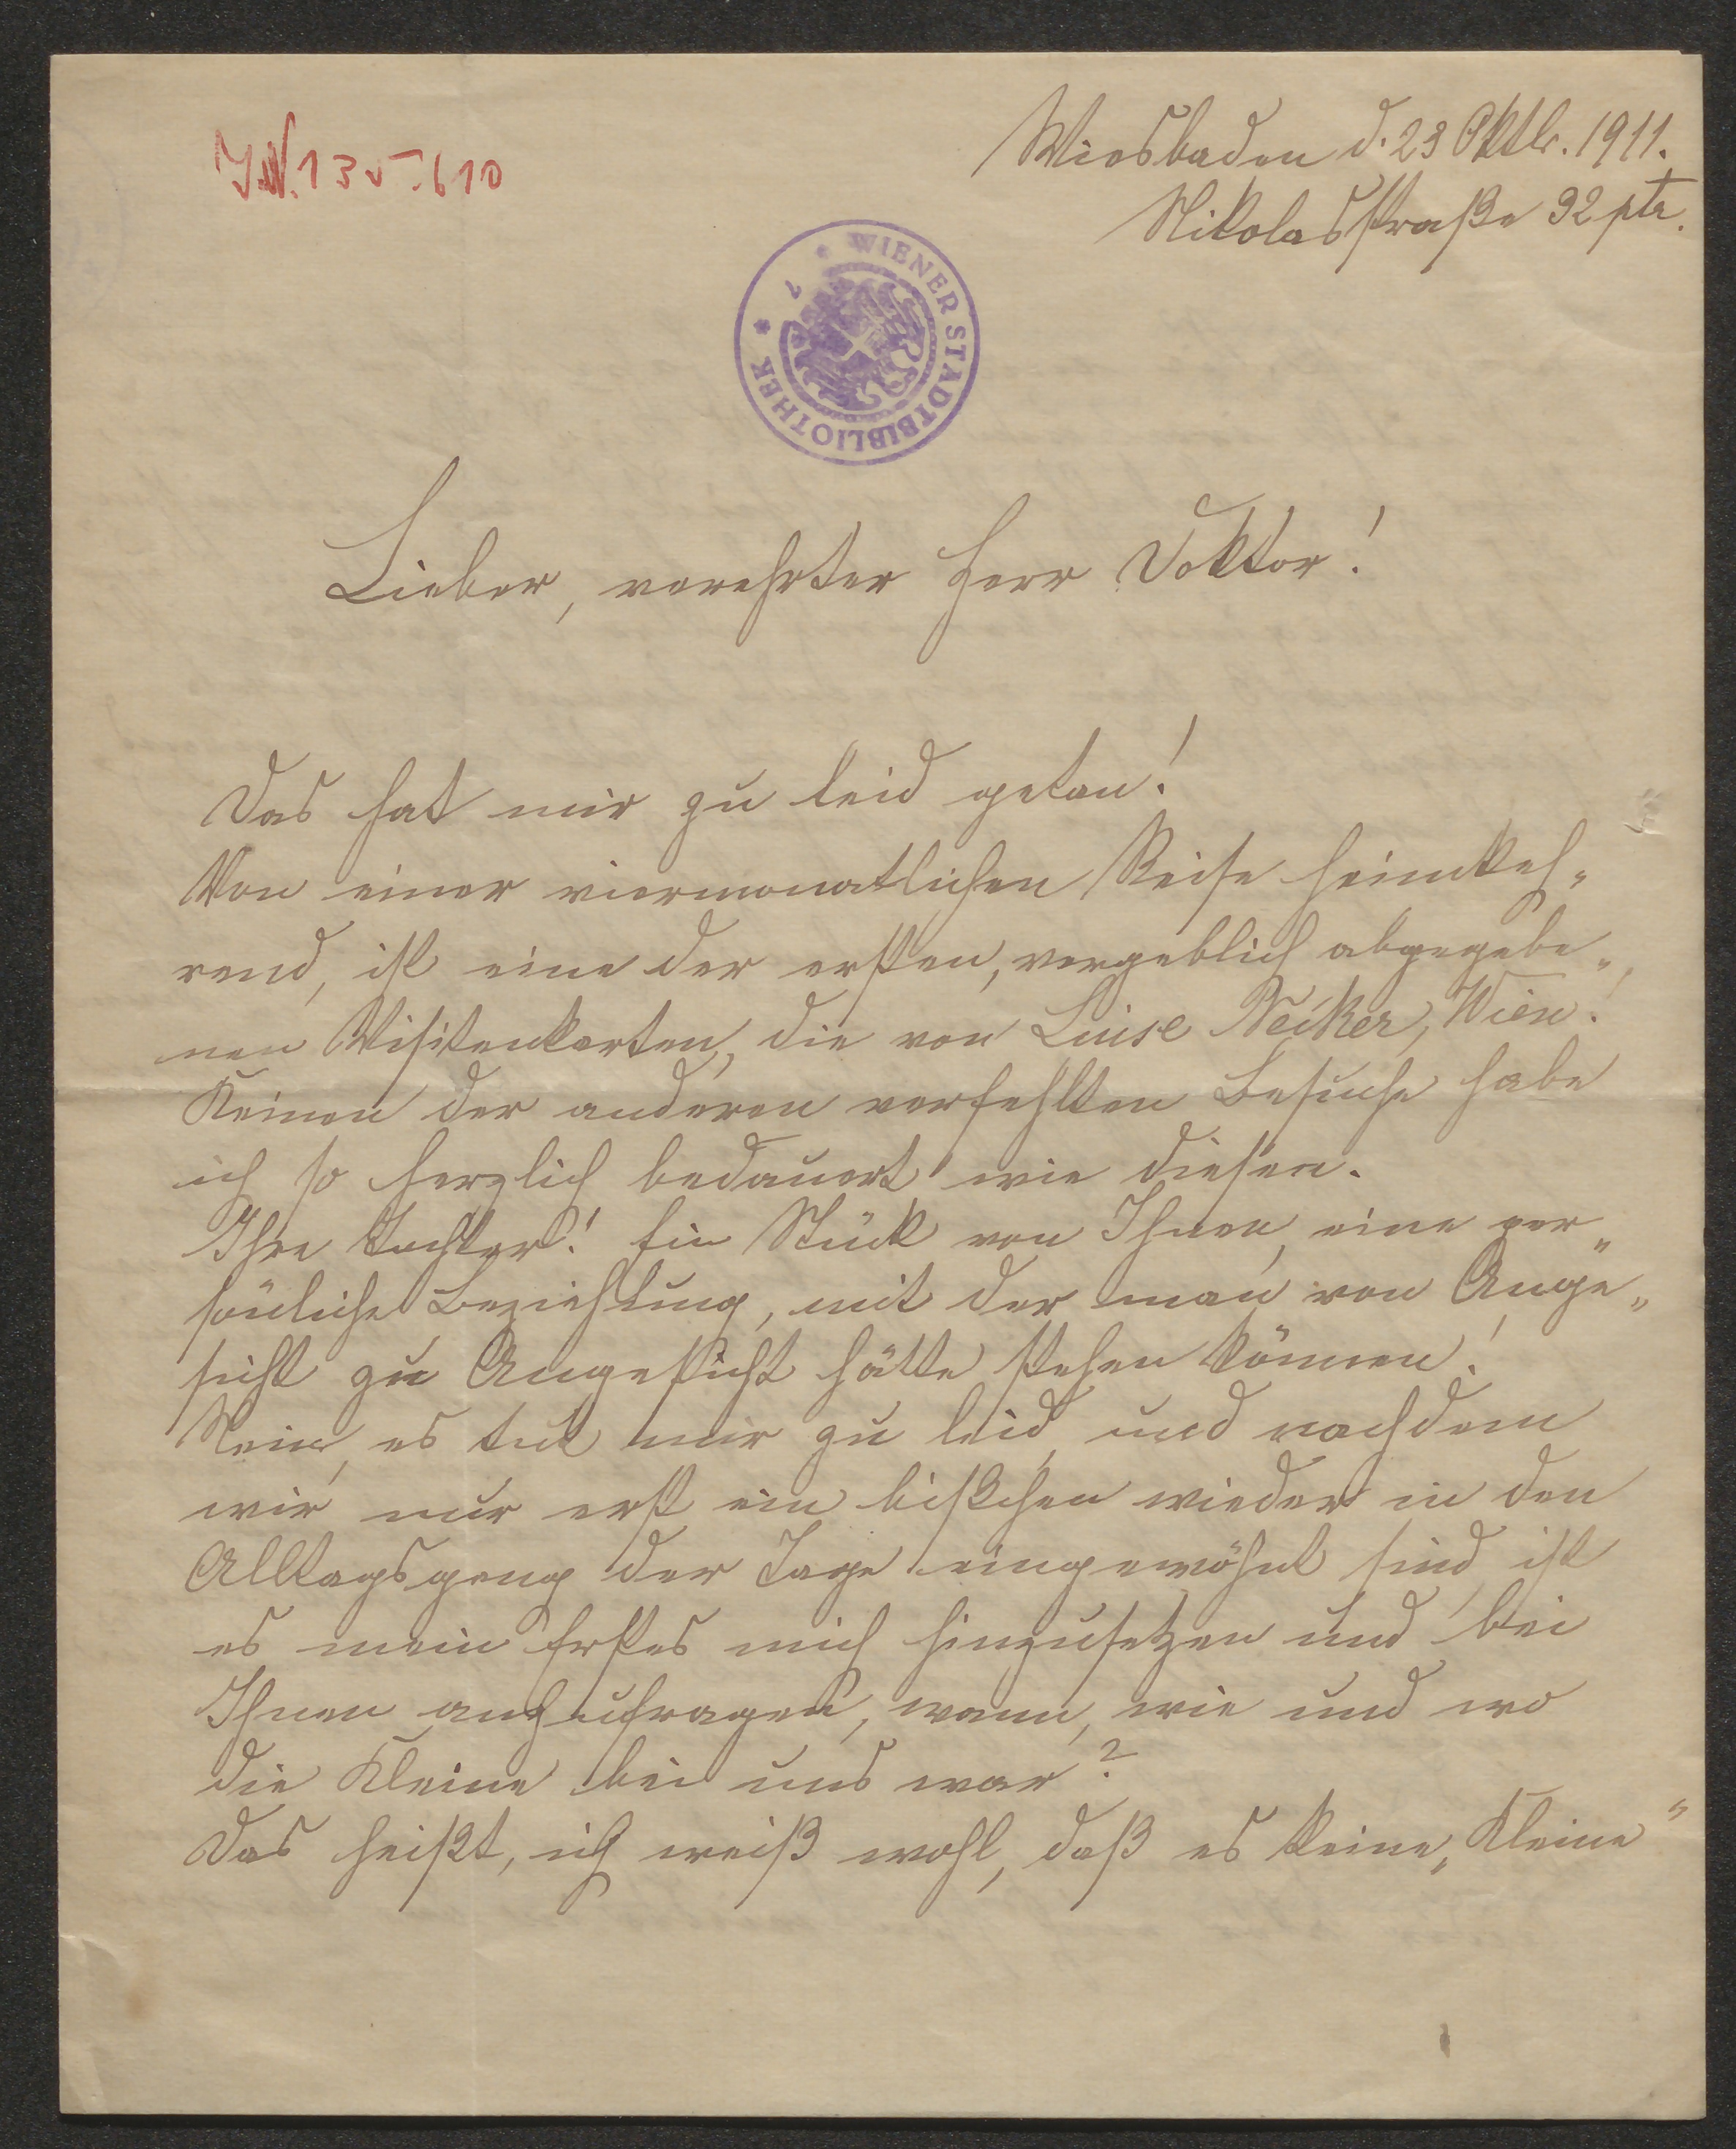 J.N. 135.610
Wiesbaden d. 23 Oktb. 1911.
Nikolasstraße 32 ptr.
WIENER STADTBIBLIOTHEK
Lieber, verehrter Herr Doktor!
Das hat mir zu leid getan!
Von einer viermonatlichen Reise heimkeh-
rend, ist eine der ersten, vergeblich abgegebe-
nen Visitenkarten, die von Luise Necker, Wien!
Keinen der anderen verfehlten Besuche habe
ich so herzlich bedauert wie diesen.
Ihre Tochter! Ein Stück von Ihnen, eine per-
sönliche Beziehung, mit der man von Ange-
sicht zu Angesicht hätte stehen können!
Nein, es tut mir zu leid, und nachdem
wir nur erst ein bißchen wieder in den
Alltagsgang der Tage eingewöhnt sind, ist
es mein Erstes mich hinzusetzen und bei
Ihnen anzufragen, wann, wie und wo
die Kleine bei uns war?
Das heißt, ich weiß wohl, daß es keine „Kleine"